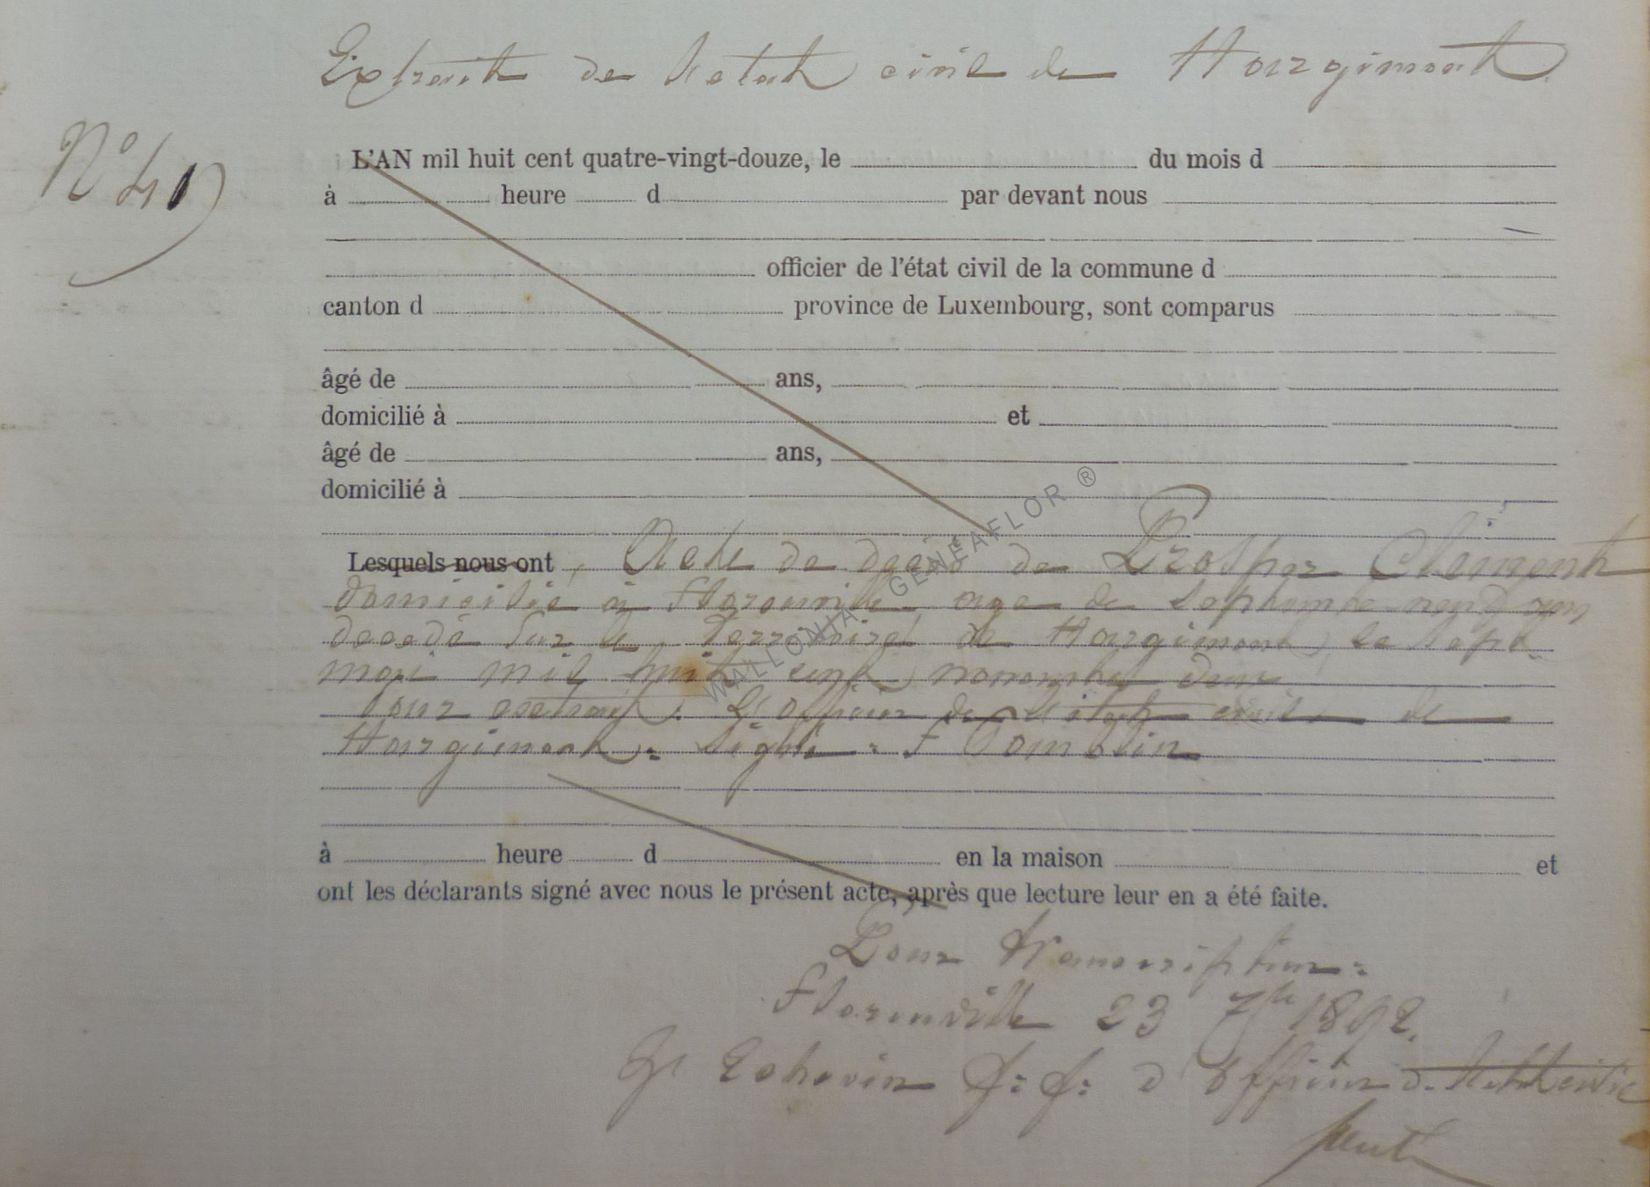 Extrait de l'etat civil de Hargimont
N° 41
L'AN mil huit cent quatre-vingt-douze, le du mois d
à heure d par devant nous
officier de l'état civil de la commune d
canton d province de Luxembourg, sont comparus
âgé de ans,
domicilié à et
âgé de ans,
domicilié à
Lesquels nous ont Acte de décès de Prosper Clement
domicilié à Florenville age de ans
decedé sur le Territoire de Hargimont le sept
mai mil huit cent nonante deux
pour extrait. L'officier de l'etat civil de
Hargimont = Signé = F
à heure d en la maison et
ont les déclarants signé avec nous le présent acte, après que lecture leur en a été faite.
Pour transcription =
Florenville 23 7bre 1892.
L' Echevin f: f: d'officier d. l'etat civil
WALLONIA GENEAFLOR ®